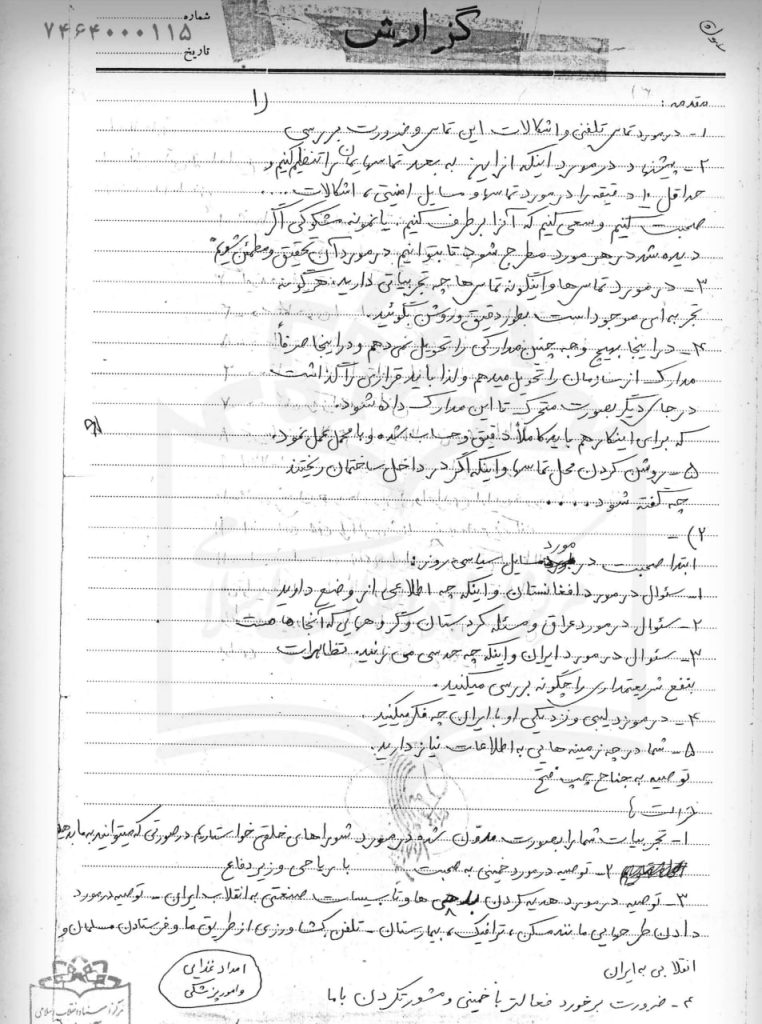 گزارش
شماره
۷۴۶۴۰۰۰۱۱۵
تاریخ
مقدمه :
۱)
۱- در مورد تماس تلفنی و اشکالات این تماس و ضرورت بررسی
۲- پیشنهاد در مورد اینکه از این به بعد تماسهایمان را تنظیم کنیم و
حداقل ۱۰ دقیقه را در مورد تماسها و مسایل امنیتی، اشکالات ....
صحبت کنیم و سعی کنیم که آنرا برطرف کنیم. یا نمونه مشکوکی اگر
دیده شد در هر مورد مطرح شود تا بتوانیم در مورد آن تحقیق و مطمئن شویم
۳- در مورد تماس ها و اینگونه تماس ها چه تجربیاتی دارید. هرگونه
تجربه ای موجود است بطور دقیق و روشن بگوئید.
۴- در اینجا بهیچ وجه چنین مدارکی را تحویل نمی دهم و در اینجا صرفاً
مدارک از سازمان را تحویل میدهم و لذا باید قراری را گذاشت
در جای دیگر بصورت متحرک تا این مدارک داده شود.
که برای اینکار هم باید کاملاً دقیق و حساب شده و با محمل عمل نمود.
۵- روشن کردن محل تماسها و اینکه اگر در داخل ساختمان ریختند
چه گفته شود .....
۲) -
ابتدا صحبت در مورد مسایل سیاسی روز :
۱- سئوال در مورد افغانستان و اینکه چه اطلاعی از وضع دارید
۲- سئوال در مورد عراق و مسئله کردستان و گروهایی که آنجاها هست
۳- سئوال در مورد ایران و اینکه چه حدسی می زنید. تظاهرات
بنفع شریعتمداری را چگونه بررسی میکنید.
۴- در مورد لیبی و نزدیکی او با ایران چه فکر میکنید.
۵- شما در چه زمینه هایی به اطلاعات نیاز دارید.
توصیه به جناح چپ فتح
۱- تجربیات شما را بصورت مدون شده در مورد شوراهای خلقی خواستاریم در صورتی که میتوانید به ما بدهید
۲- توصیه در مورد خمینی به صحبت با ریاحی وزیر دفاع
۳- توصیه در مورد هدیه کردن ها و تاسیسات صنعتی به انقلاب ایران - توصیه در مورد
دادن طرحهایی مانند مسکن، ترافیک، بیمارستان - تلفن کشاورزی از طریق ما و فرستادن مسلمان و
انقلابی به ایران
امداد غذایی
و امور پزشکی
۴- ضرورت برخورد فعالتر با خمینی و مشورت کردن با ما
مرکز اسناد انقلاب اسلامی